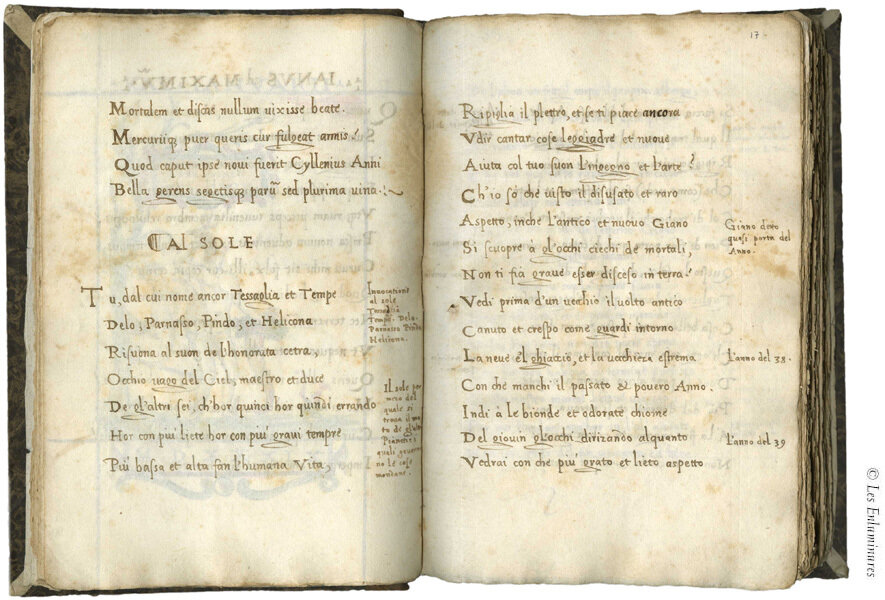 Mortalem et discas nullum uixisse beate.
Mercuriiq; puer queris cur fulgeat armis?
Quod caput ipse noui fuerit Cyllenius Anni
Bella gerens segetisq; parũ sed plurima uina.
AL SOLE
Tu, dal cui nome ancor Tessaglia et Tempe
Delo, Parnasso, Pindo, et Helicona
Risuona al suon de l'honorata cetra,
Occhio uago del Ciel, maestro et duce
De gl'altri sei, ch'hor quinci hor quindi errando
Hor con piu' liete hor con piu' graui tempre
Piu' bassa et alta fan l'humana Vita,
Inuocatione
al sole
Tessaglia
Tempe. Delo.
Parnasso Pindo
Helicona.
Il sole per
mezo del
quale si
troua il mo
to de gl'altri
Pianeti,
quali gouerna
no le cose
mondane.
17
Ripiglia il plettro, et se ti piace ancora
Vdir cantar cose leggiadre et nuoue
Aiuta col tuo suon l'ingegno et l'arte?
Ch'io so che uisto il disusato et raro
Aspetto, in che l'antico et nuouo Giano
Si scuopre à gl'occhi ciechi de mortali,
Non ti fia graue esser disceso in terra?
Vedi prima d'un uecchio il uolto antico
Canuto et crespo come guardi intorno
La neue el ghiaccio, et la uecchiezza estrema
Con che manchi il passato & pouero Anno.
Indi à le bionde et odorate chiome
Del giouin gl'occhi dirizando alquanto
Vedrai con che piu' grato et lieto aspetto
Giano detto
quasi porta del
Anno.
l'anno del 38.
l'anno del 39
© Les Enluminures